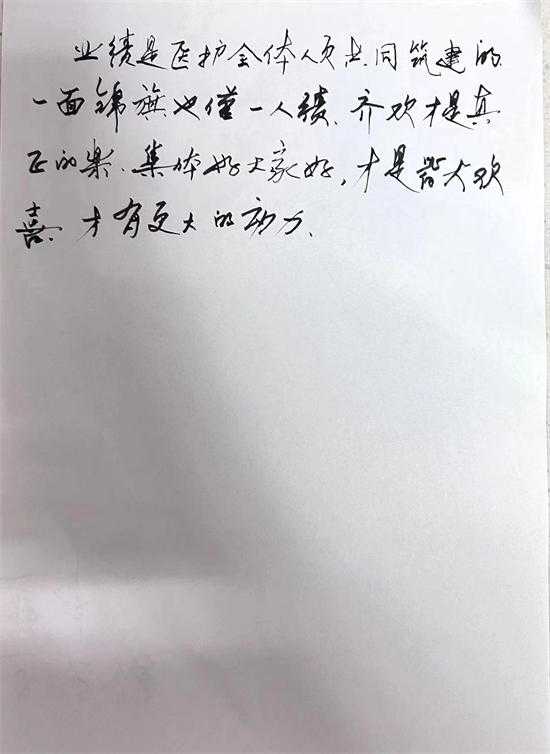 业绩是医护全体人员共同筑建的
一面锦旗也僅一人绩、齐欢才是真
正的樂、集体好大家好，才是皆大欢
喜、才有更大的动力、